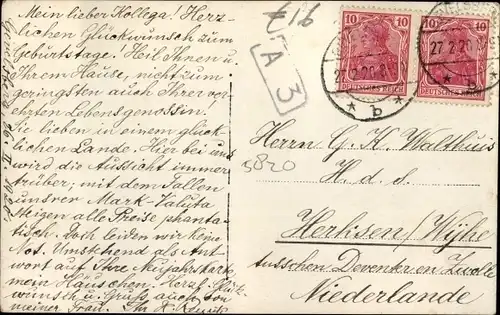 Mein lieber Kollega! Herz-
lichen Glückwunsch zum
Geburtstage! Heil Ihnen u.
Ihrem Hause, nicht zum
geringsten auch Ihrer ver-
ehrten Lebensgenossin!
Sie lieben in einem glück-
lichen Lande. Hier bei uns
wird die Aussicht immer
trüber; mit dem Fallen
unsrer Mark-Valuta
steigen alle Preise phanta-
stisch. Doch leiden wir keine
Not. Umstehend als Ant-
wort auf Ihre Neujahrskarte
mein Häuschen. Herzl. Glück-
wunsch u. Gruß auch von
meiner Frau. Ihr K.
A 3
10 10
DEUTSCHES REICH
DEUTSCHES REICH
27.2.20.8
27.2.20.8
* b *
* b *
Herrn G. K. Walthuis
5820
H. d. S.
Herksen/Wijhe
tusschen Deventer en Zwolle
Niederlande